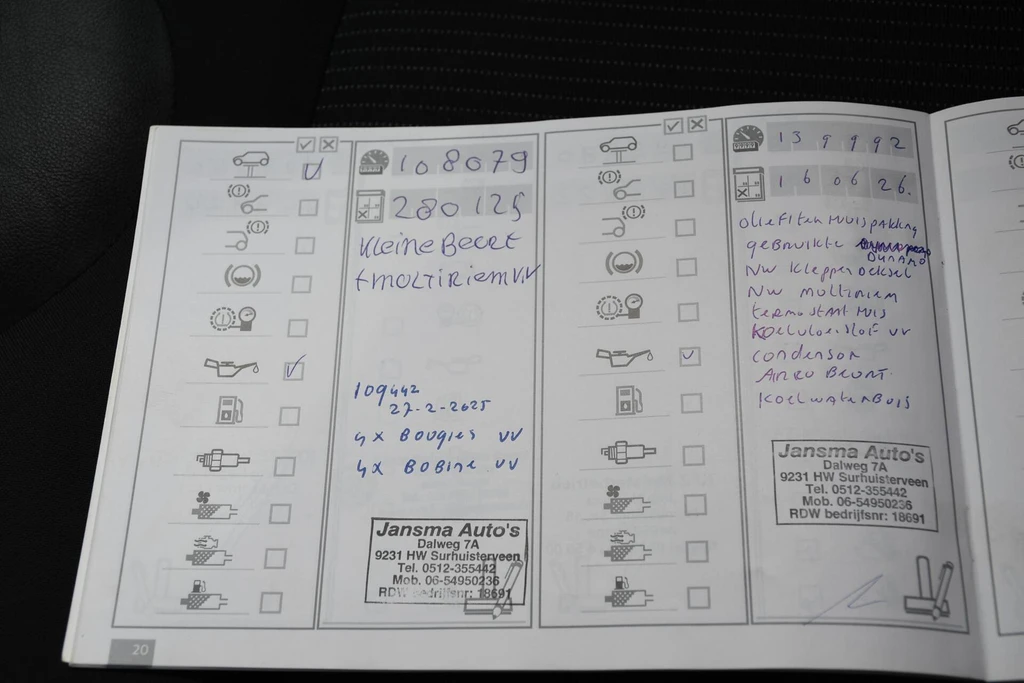 108079
280125
Kleine Beurt
+ MOLTIRIEM V.V
109442
27-2-2025
4x BOUGIES VV
4x BOBINE VV
Jansma Auto's
Dalweg 7A
9231 HW Surhuisterveen
Tel. 0512-355442
Mob. 06-54950236
RDW bedrijfsnr: 18691
20
139992
160626.
OLIEFILTER HUIS PAKKING
GEBRUIKTE
DYNAMO
NW KLEPPENDEKSEL
NW MULTIRIEM
TERMOSTAAT HUIS
KOELVLOEISTOF VV
CONDENSOR
AIRCO BEURT
KOELWATERBUIS
Jansma Auto's
Dalweg 7A
9231 HW Surhuisterveen
Tel. 0512-355442
Mob. 06-54950236
RDW bedrijfsnr: 18691